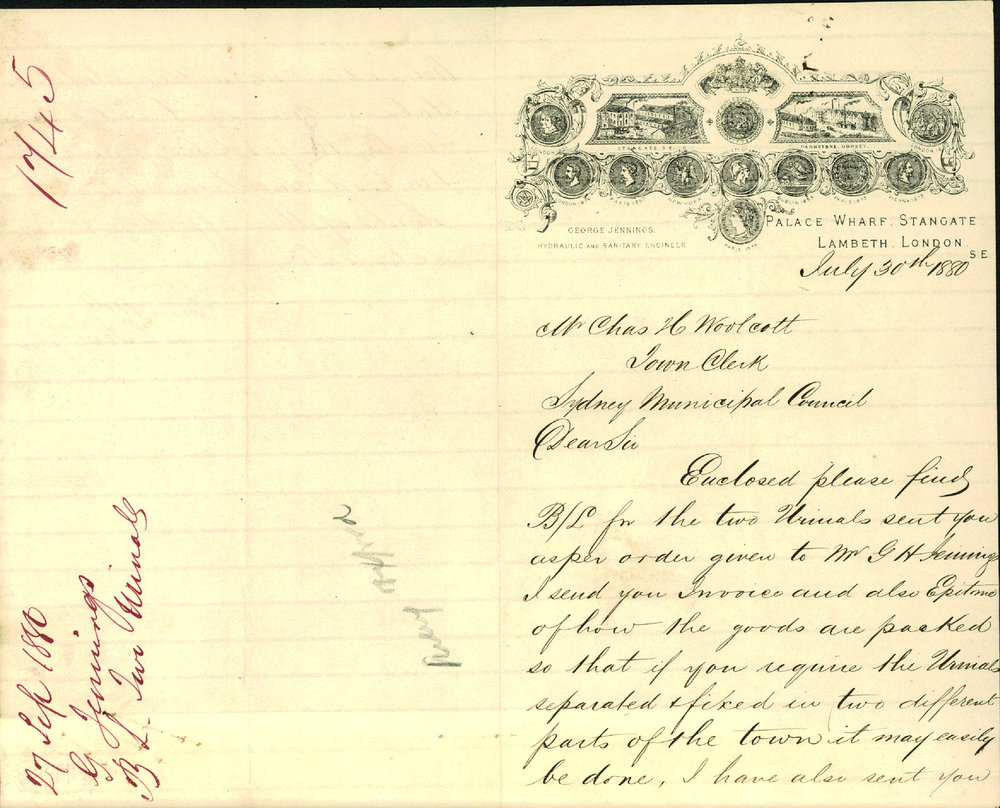 1745
27 Sep 1880
G Jennings
B L Two Urinals
STANGATE S.E.
PARKSTONE, DORSET
GEORGE JENNINGS.
HYDRAULIC AND SANITARY ENGINEER
PALACE WHARF, STANGATE
LAMBETH. LONDON.
S.E.
July 30th 1880
Mr Chas H Woolcott
Town Clerk
Sydney Municipal Council
Dear Sir
Enclosed please find
B/L for the two Urinals sent you
as per order given to Mr G H Jennings
I send you Invoice and also Epitome
of how the goods are packed
so that if you require the Urinals
separated & fixed in two different
parts of the town it may easily
be done, I have also sent you